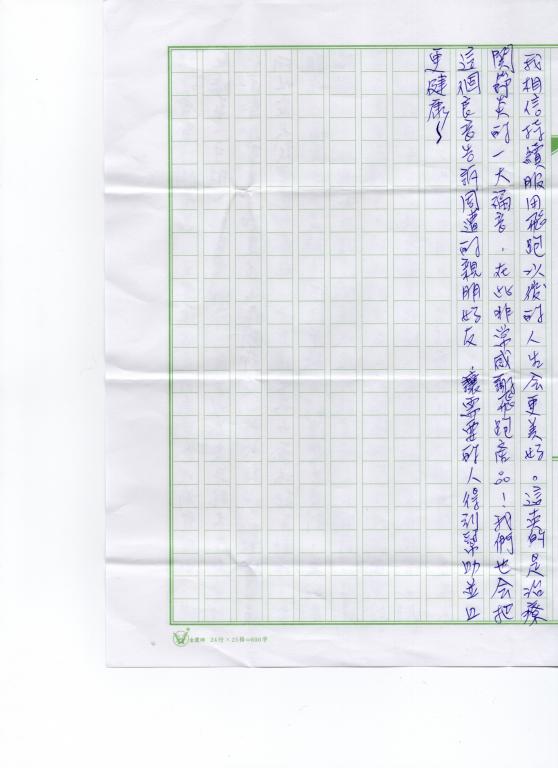 我相信持續服用飛跑以後的人生會更美好。這真的是治療
關節炎的一大福音，在此非常感謝飛跑產品！我們也會把
這個良音告訴周遭的親朋好友，讓需要的人得到幫助並且
更健康～
24行×25格=600字